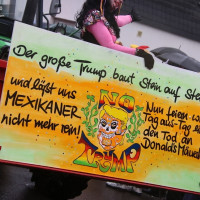 Der große Trump baut Stein auf Ste
und läßt uns
MEXIKANER
nicht mehr rein!
NO
TRUMP
Nun feiern w
Tag aus-Tag e
den Tod an
Donalds Maue